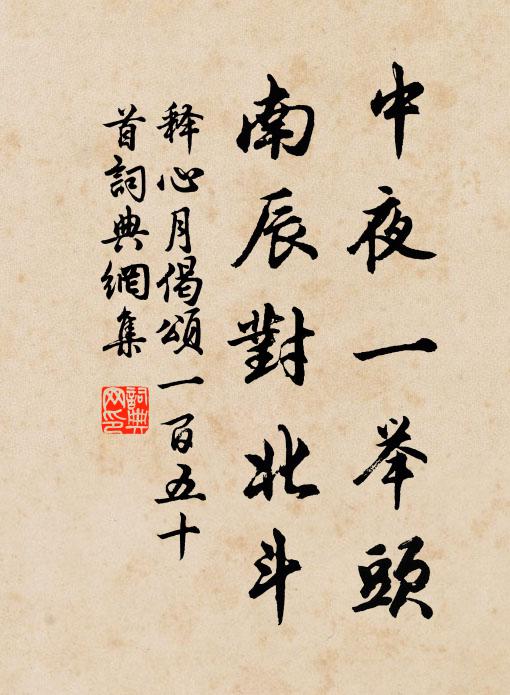 中夜一举頭
南辰對北斗
释心月偈頌一百五十
首詞典網集
詞典網印